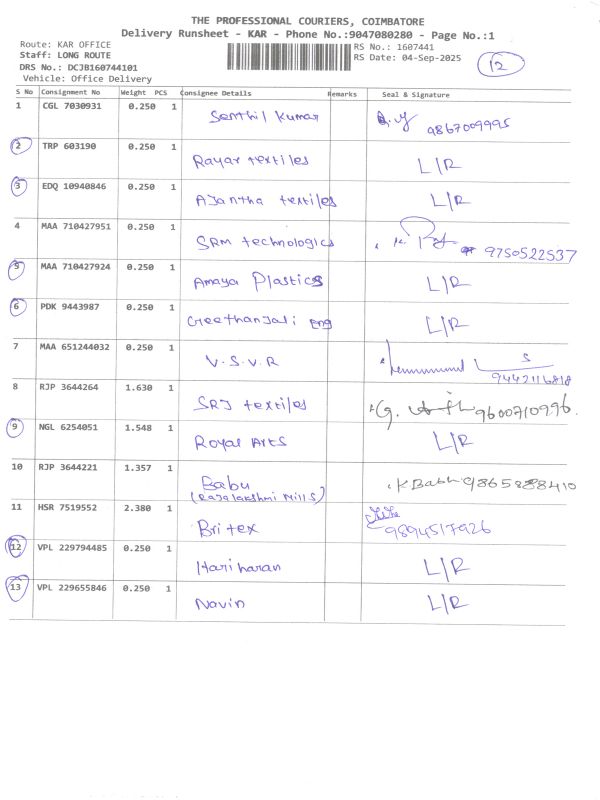 THE PROFESSIONAL COURIERS, COIMBATORE
Delivery Runsheet - KAR - Phone No.:9047080280 - Page No.:1
Route: KAR OFFICE
Staff: LONG ROUTE
DRS No.: DCJB160744101
Vehicle: Office Delivery
RS No.: 1607441
RS Date: 04-Sep-2025
12
S No Consignment No Weight PCS Consignee Details Remarks Seal & Signature
1 CGL 7030931 0.250 1 Senthil Kumar 9867009995
2 TRP 603190 0.250 1 Rayar textiles L/R
3 EDQ 10940846 0.250 1 Ajantha textiles L/R
4 MAA 710427951 0.250 1 SRM technologics 9750522537
5 MAA 710427924 0.250 1 Amaya Plastics L/R
6 PDK 9443987 0.250 1 Geethanjali Eng L/R
7 MAA 651244032 0.250 1 V.S.V.R 9442116818
8 RJP 3644264 1.630 1 SRJ textiles G. 9600710996.
9 NGL 6254051 1.548 1 Royal Arts L/R
10 RJP 3644221 1.357 1 Babu K Babu 9865888410
(Rajalakshmi Mills)
11 HSR 7519552 2.380 1 Britex 9894517926
12 VPL 229794485 0.250 1 Hariharan L/R
13 VPL 229655846 0.250 1 Navin L/R